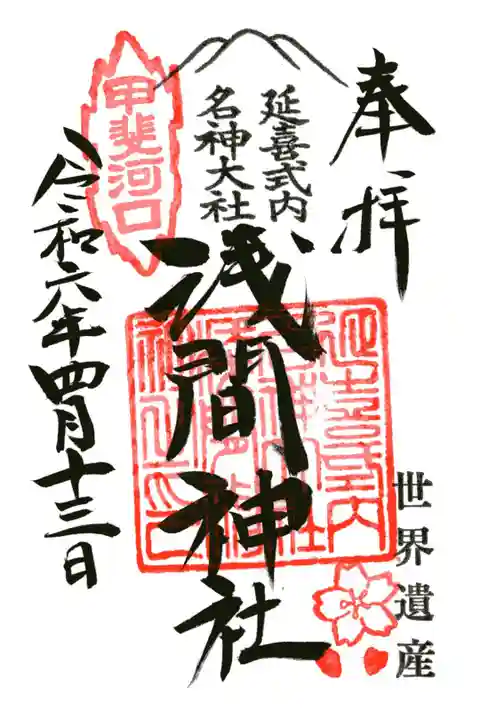 奉拝
延喜式内
名神大社
浅間神社
世界遺産
甲斐河口
令和六年四月十三日